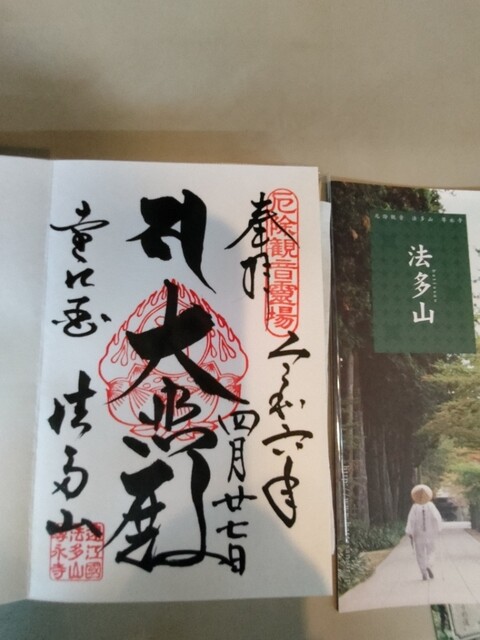 厄除観音霊場
奉拝
令和六年
四月廿七日
大悲殿
遠江国
法多山
遠江國
法多山
尊永寺
厄除観音 法多山 尊永寺
法多山